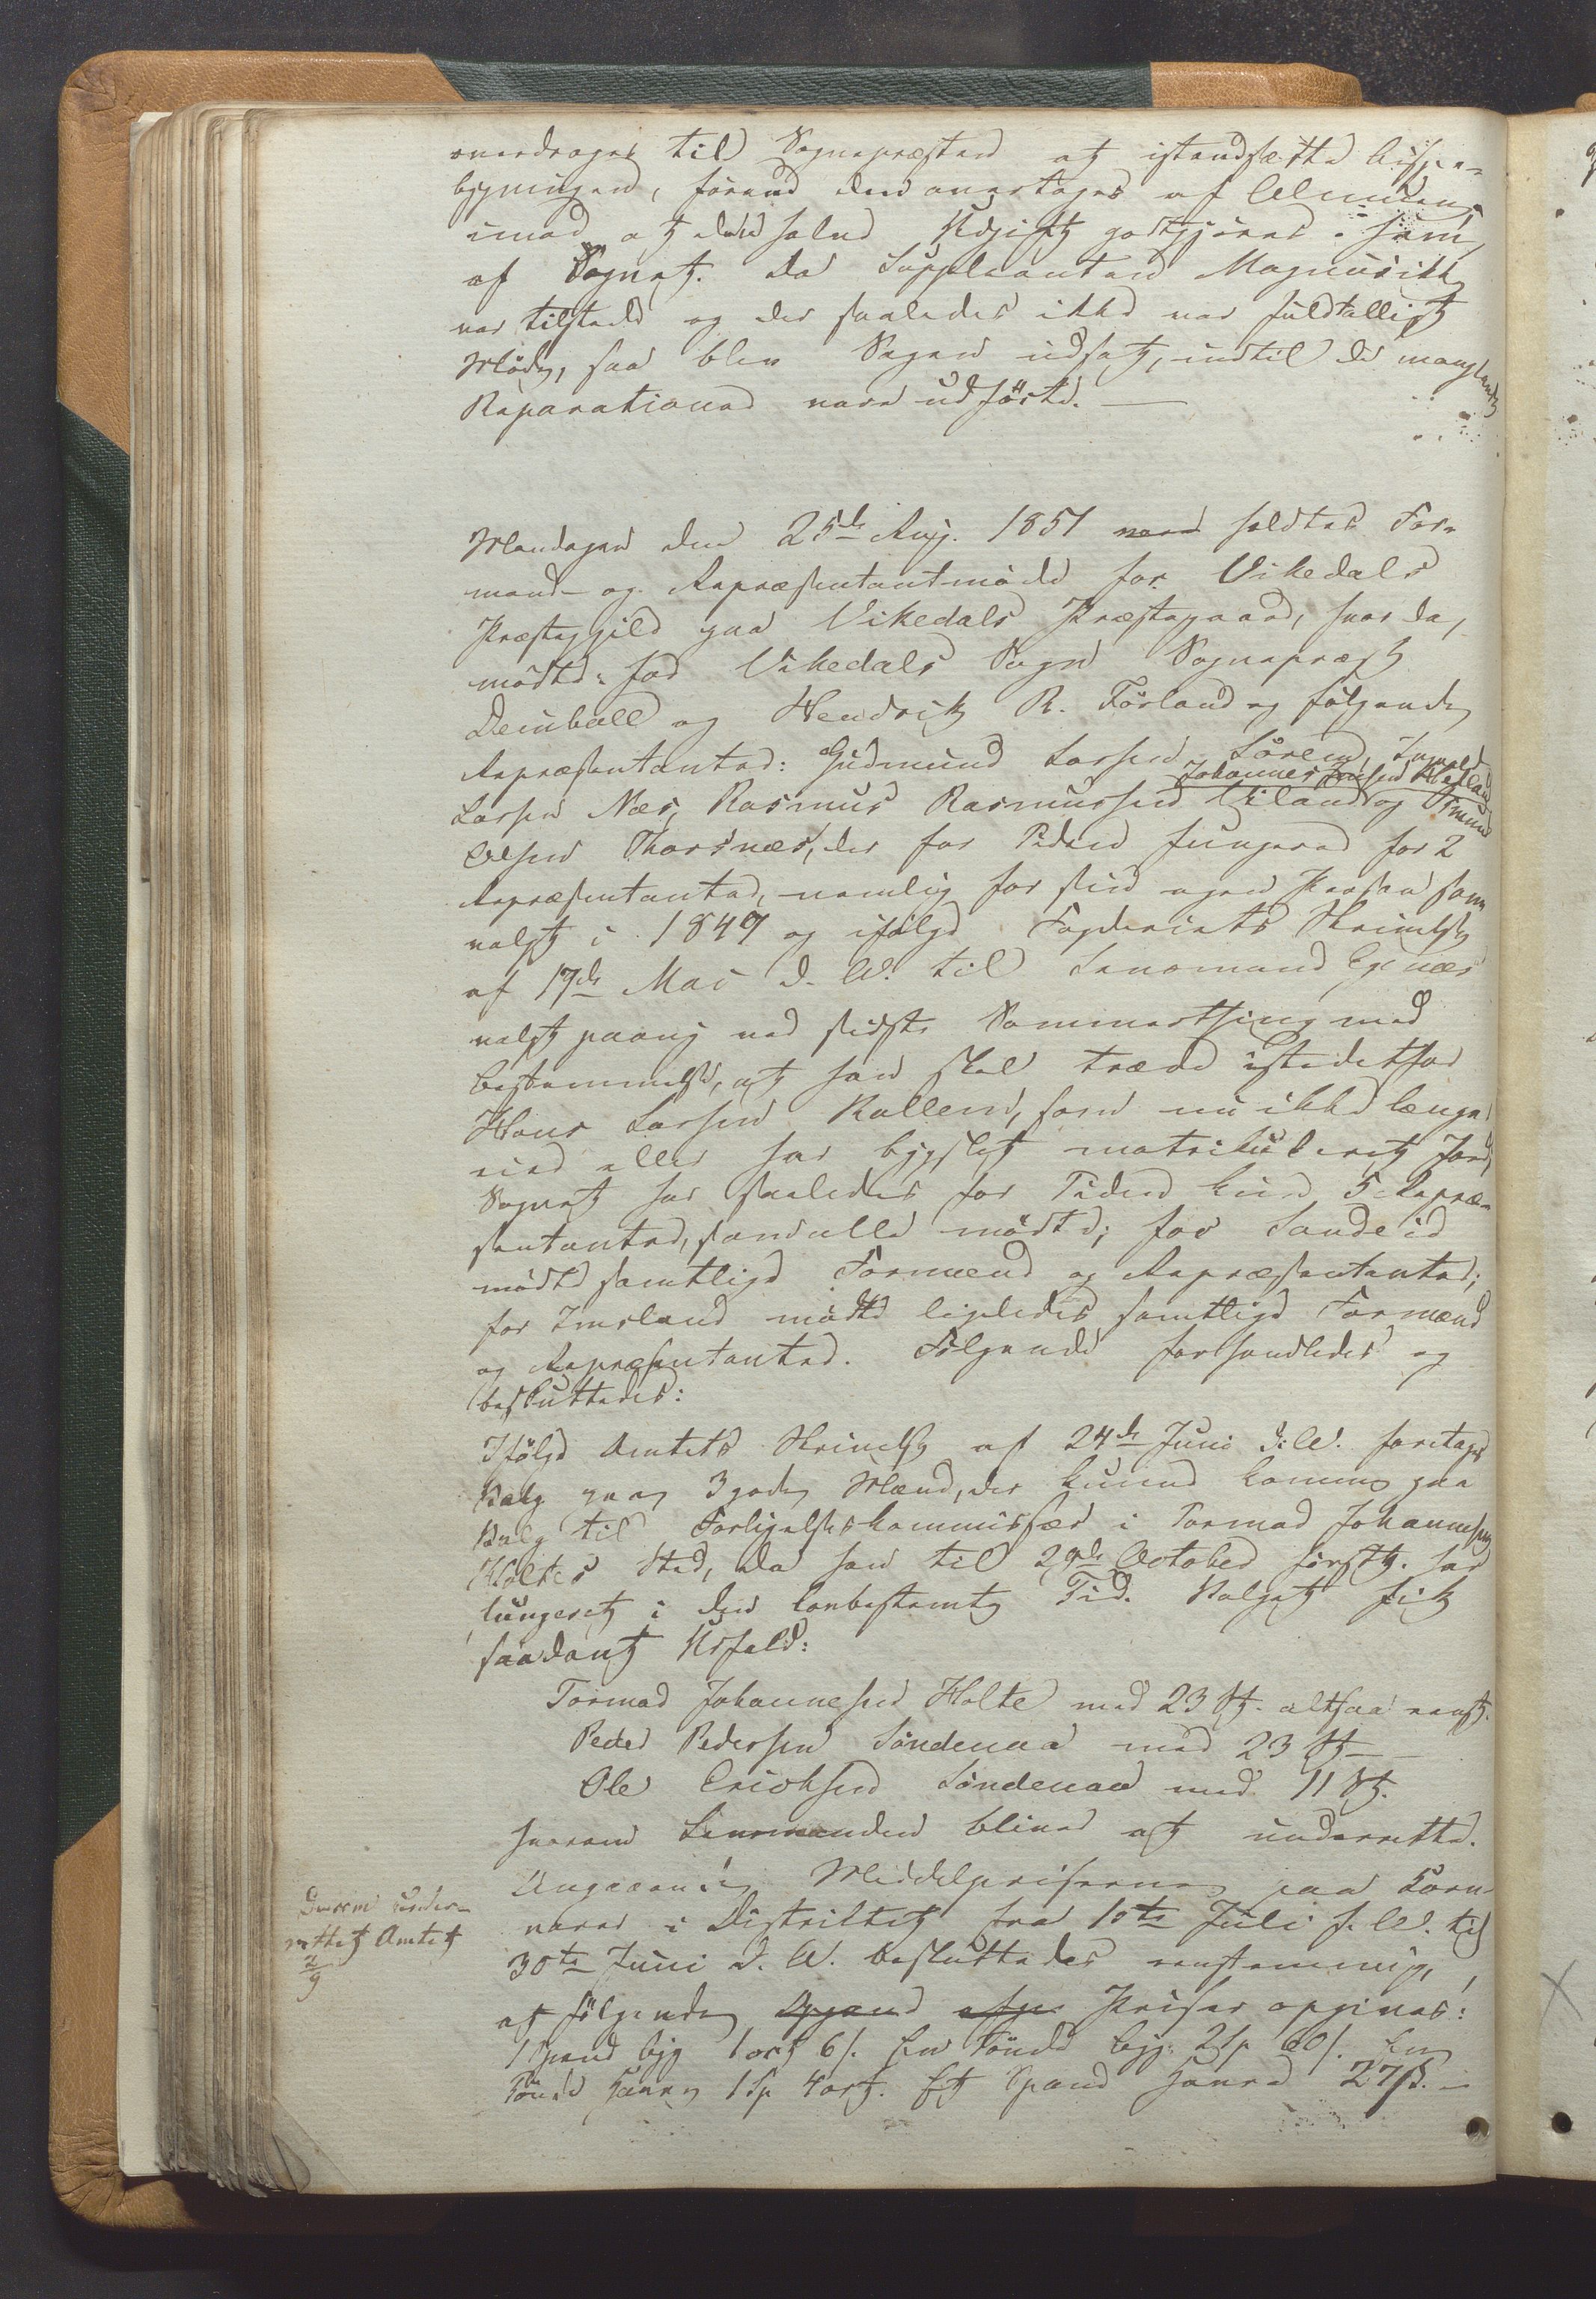 overdrages til Sognepræsten at istandsætte
bygningen, forend den overtages af Almuen,
imod at dens halve Udgift godtgjøres ham
af Sognet. Da Supplianten Magnus ikke
var tilstede og der saaledes ikke var fuldtalligt
Møde, saa blev Sagen udsat, indtil de manglende
Reparationer vare udførte. —
Mandagen den 25de Aug. 1851 holdtes For-
mand- og Repræsentantmøde for Vikedals
Præstegjeld paa Vikedals Præstegaard, hvor da
mødte: for Vikedals Sogn Sognepræst
Deinboll og Hendrik R. Førland og følgende
Repræsentanter: Gudmund Larsen Søren,
Johannes Hetland
Larsen Næs, Rasmus Rasmussen Øiland og
Olsen Thorsnæs, der for Tiden fungerer for 2
Repræsentanter, nemlig for sin egen Person som
valgt i 1849 og ifølge Fogderiets Skrivelse
af 17de Mai d. A. til Lensmand Egenæs
valgt paany ved sidste Sommerthing med
Bestemmelse, at han skal træde istedetfor
Hans Larsen Rullern, som nu ikke længer
eier eller har bygslet matrikuleret Jord,
Sognet har saaledes for Tiden kun 5 Repræ-
sentanter, som alle mødte; for Sandeid
mødte samtlige Formænd og Repræsentanter;
for Imsland mødte ligeledes samtlige Formænd
og Repræsentanter. Følgende forhandledes og
besluttedes:
Ifølge Amtets Skrivelse af 24de Juni d. A. foretoges
Valg paa 3 gode Mænd, der kunne komme paa
Valg til Forligelseskommissær i Tormod Johannesen
Holtes Sted, da han til 29de October førstk. har
fungeret i den lovbestemte Tid. Valget fik
saadant Udfald:
Tormod Johannesen Holte med 23 St. altsaa eenst.
Peder Pedersen Søndenaa med 23 St. —
Ole Ericksen Søndenaa med 11 St.
hvorom Lensmanden bliver at underrette.
Angaaende Middelpriserne paa Korn-
varer i Distriktet fra 1ste Juli f. A. til
30te Juni d. A. besluttedes eenstemmig,
at følgende Priser opgives:
1 Spand Byg 1 ort 6 s. En Tønde Byg 2 Sp 60 s. En
Tønde Havre 1 Sp. 4 ort. Et Spand Havre 27 s. —
Hvorom under-
rettet Amtet
2/9